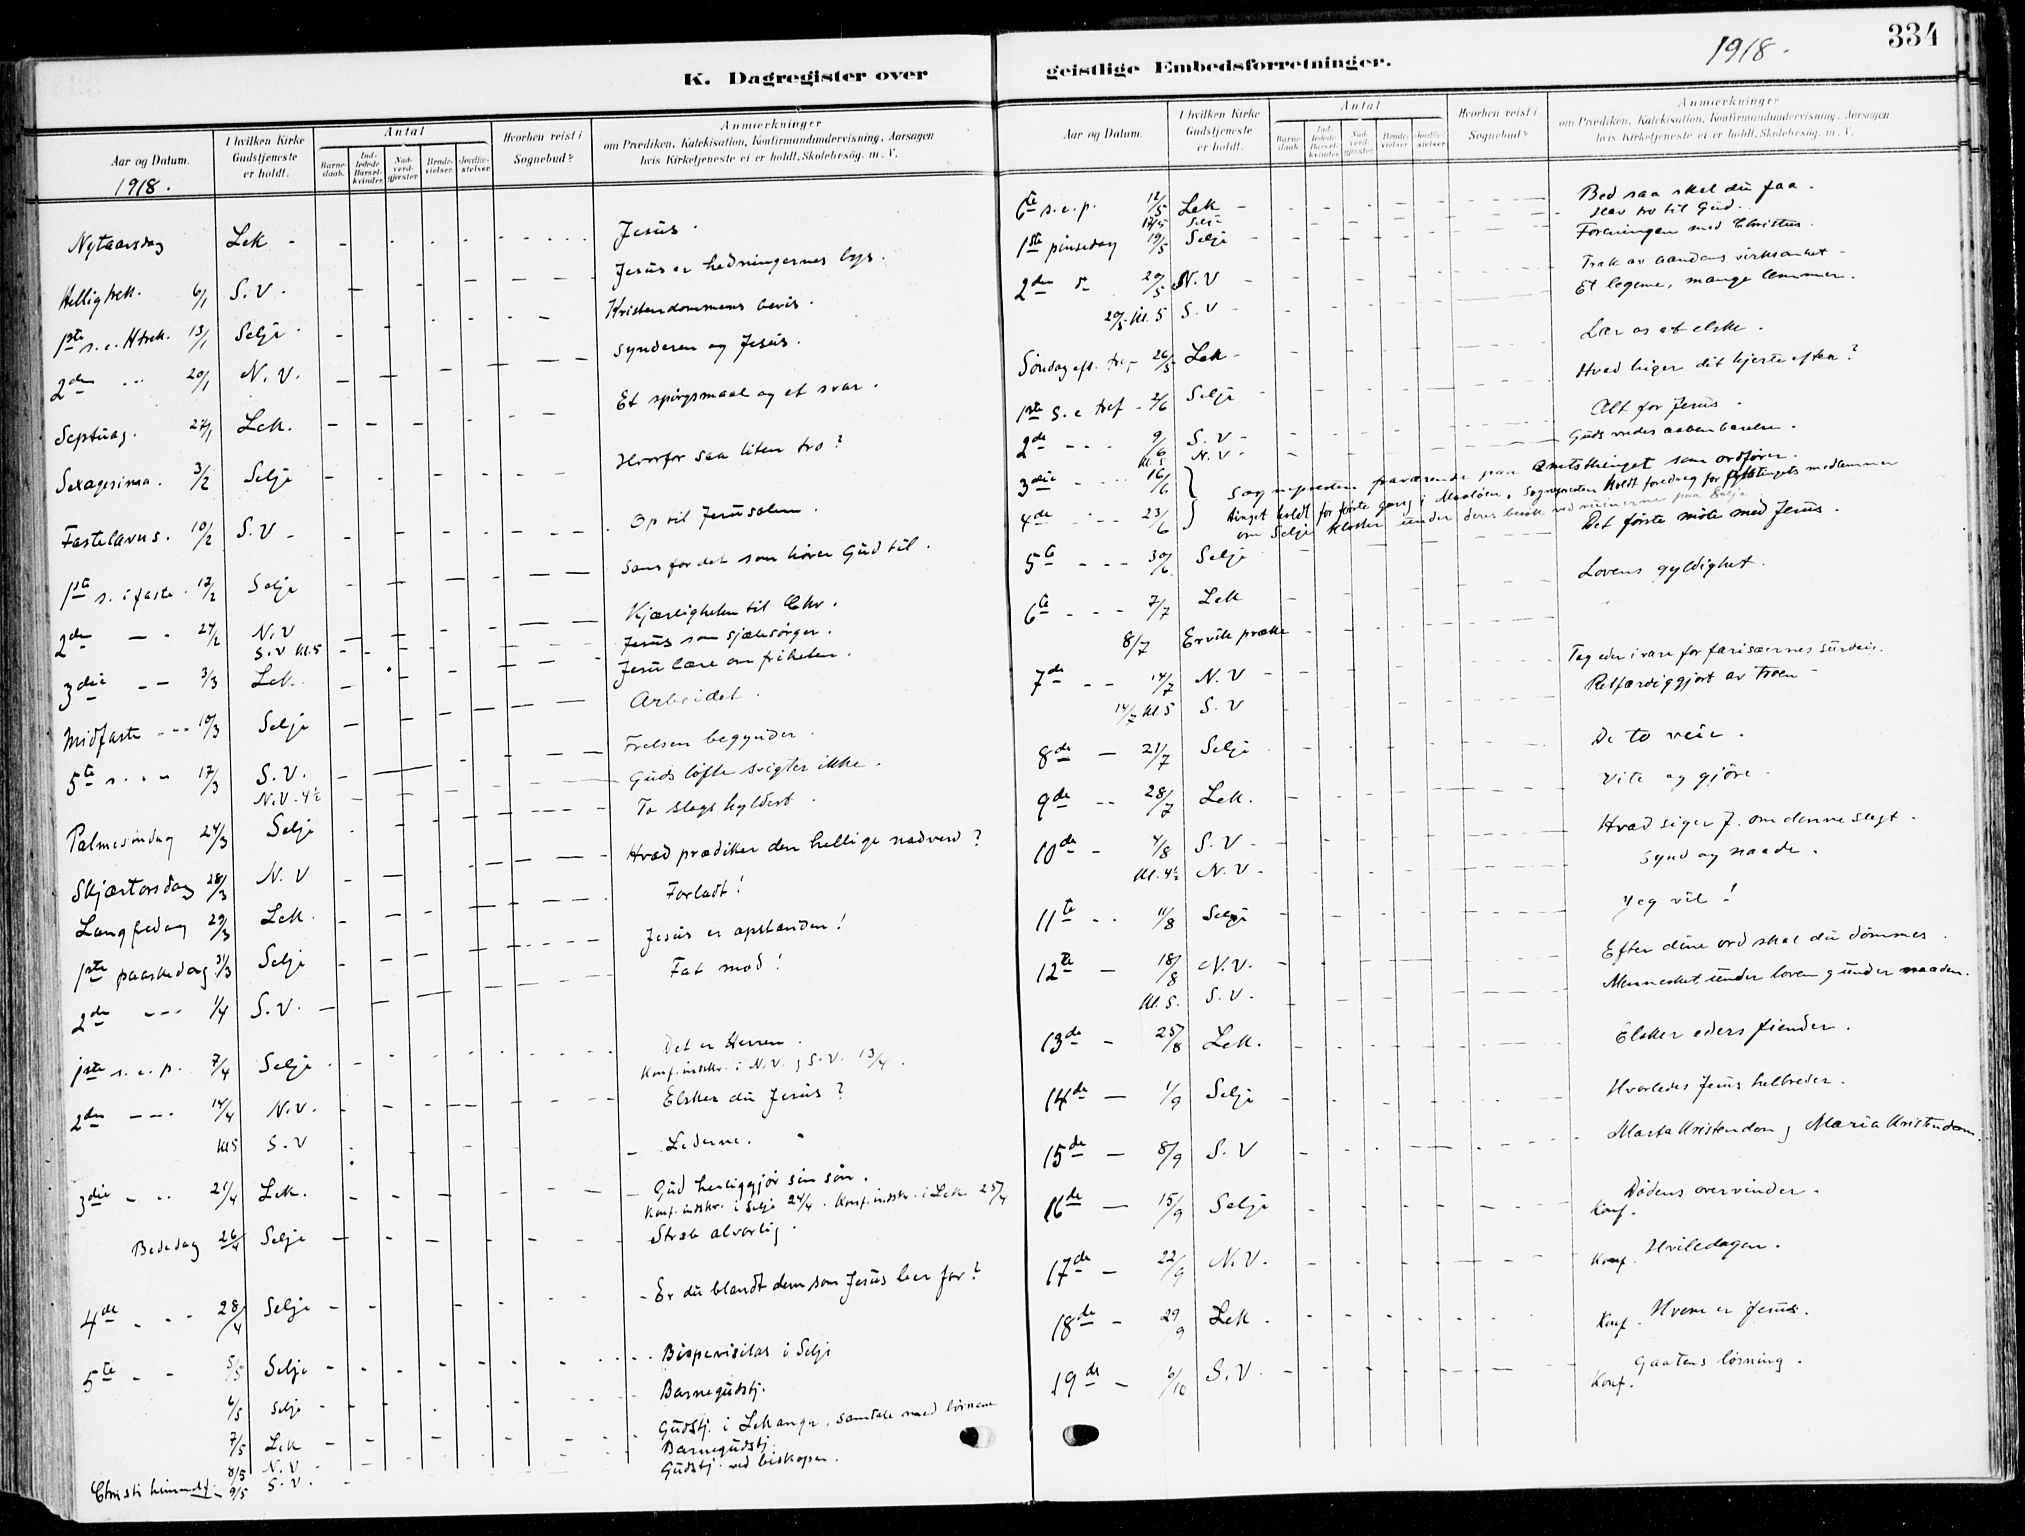 K. Dagregister over
Aar og Datum.
1918.
I hvilken Kirke Gudstjeneste er holdt.
Antal
Barnedaab.
Indledede Barselkvinder.
Nadverdgjæster
Brudevielser
Jordfæstelser
Hvorhen reist i Sognebud?
Anmærkninger
om Prædiken, Katekisation, Konfirmandundervisning, Aarsagen
hvis Kirketjeneste ei er holdt, Skolebesøg. m. V.
Nytaarsdag Lek - Jesus.
Helligtrek. 6/1 S.V. Jesus er hedningernes lys.
1ste s.e. Htrek. 13/1 Selje Kristendommens bevis.
2den 20/1 N.V. Synderen og Jesus.
Septuag. 27/1 Lek. Et spørgsmaal og et svar.
Sexagesima. 3/2 Selje Hvorfor saa liten tro?
Fastelavns. 10/2 S.V. Op til Jerusalem.
1ste s. i faste. 17/2 Selje Sans for det som hører Gud til.
2den - - 24/2 N.V Kjærligheten til Chr.
S.V Kl.5 Jesus som sjælesørger.
3die - - 3/3 Lek. Jesu lære om friheten.
Midfaste - - 10/3 Selje Arbeidet.
5te s. 17/3 S.V. Frelsen begynder.
N.V. 4½ Guds løfte svigter ikke.
Palmesøndag 24/3 Selje To slags hyldest.
Skjærtorsdag 28/3 N.V Hvad prædiker den hellige nadverd?
Langfredag 29/3 Lek. Forladt!
1ste paaskedag 31/3 Selje Jesus er opstanden!
2den - - - 1/4 S.V. Fat mod!
1ste s.e.p. 7/4 Selje Det er Herren.
Konf. indskr. i N.V. og S.V. 13/4.
2den - - - 14/4 N.V. Elsker du Jesus?
Kl5 S.V Lederne.
3die - - 21/4 Lek. Gud herliggjør sin søn.
Konf. indskr. i Selje 24/4. Konf. indskr. i Lek 25/4
Bededag 26/4 Selje Stræb alvorlig.
4de - - - 28/4 Selje Er du blandt dem som Jesus ber for?
5te - - 5/5 Selje Bispevisitas i Selje
6/5 Selje Barnegudstj.
7/5 Lek Gudstj. i Lekanger, samtale med
8/5 N.V Barnegudstj.
Christi himmelf. 9/5 S.V. Gudstj. ved biskopen.
geistlige Embedsforretninger.
1918.
334
Aar og Datum.
I hvilken Kirke Gudstjeneste er holdt.
Antal
Barnedaab.
Indledede Barselkvinder.
Nadverdgjæster
Brudevielser
Jordfæstelser
Hvorhen reist i Sognebud?
Anmærkninger
om Prædiken, Katekisation, Konfirmandundervisning, Aarsagen
hvis Kirketjeneste ei er holdt, Skolebesøg. m. V.
6te s.e.p. 12/5 Lek - Bed saa skal du faa.
12/5 Selje Hav tro til Gud.
1ste pinsedag 19/5 Selje Foreningen med Christus.
2den 20/5 N.V Træk av aandens virksomhet
20/5 Kl. 5 S.V Et legeme, mange lemmer.
Søndag eft. tref 26/5 Lek - Lær os at elske.
1ste s.e tref - 2/6 Selje Hvad higer dit hjerte efter?
2de - - - 9/6 S.V - Alt for Jesus.
Kl. 5 N.V - Guds vredes aabenbarelse.
3die - - - 16/6 } Sognepresten fraværende paa amtsthinget som ordfører.
4de - - - 23/6 } tinget holdt for første gang i Maaløen. Sognepresten holdt foredrag for fylkstingets medlemmer
om Selje kloster under deres besøk ved ruinerne paa Selje
5te - - - 30/6 Selje Det første møte med Jesus.
6te - - - 7/7 Lek Lovens gyldighet.
8/7 Ervik præke
7de - - 14/7 N.V - Tag eder ivare for farisæernes surdeig.
14/7 Kl 5 S.V Retfærdiggjort av troen -
8de - 21/7 Selje De to veie.
9de - - 28/7 Lek. Vite og gjøre.
10de - 4/8 S.V - Hvad siger J. om denne slegt.
Kl. 4½ N.V - Synd og naade.
11te - - 11/8 Selje Jeg vil!
12te - 18/8 N.V. Efter dine ord skal du dømmes.
Kl. 5. S.V. Mennesket under loven og under naaden.
13de - 25/8 Lek. Elsker eders fiender.
14de - 1/9 Selje Hvorledes Jesus helbreder.
15de - 8/9 S.V Marta kristendom og Maria kristendom.
16de - 15/9 Selje Konf. Dødens overvinder.
17de - 22/9 N.V. Konf. Hviledagen.
18de - 29/9 Lek. Konf. Hvem er Jesus.
19de - 6/10 S.V. Konf. Gaatens løsning.